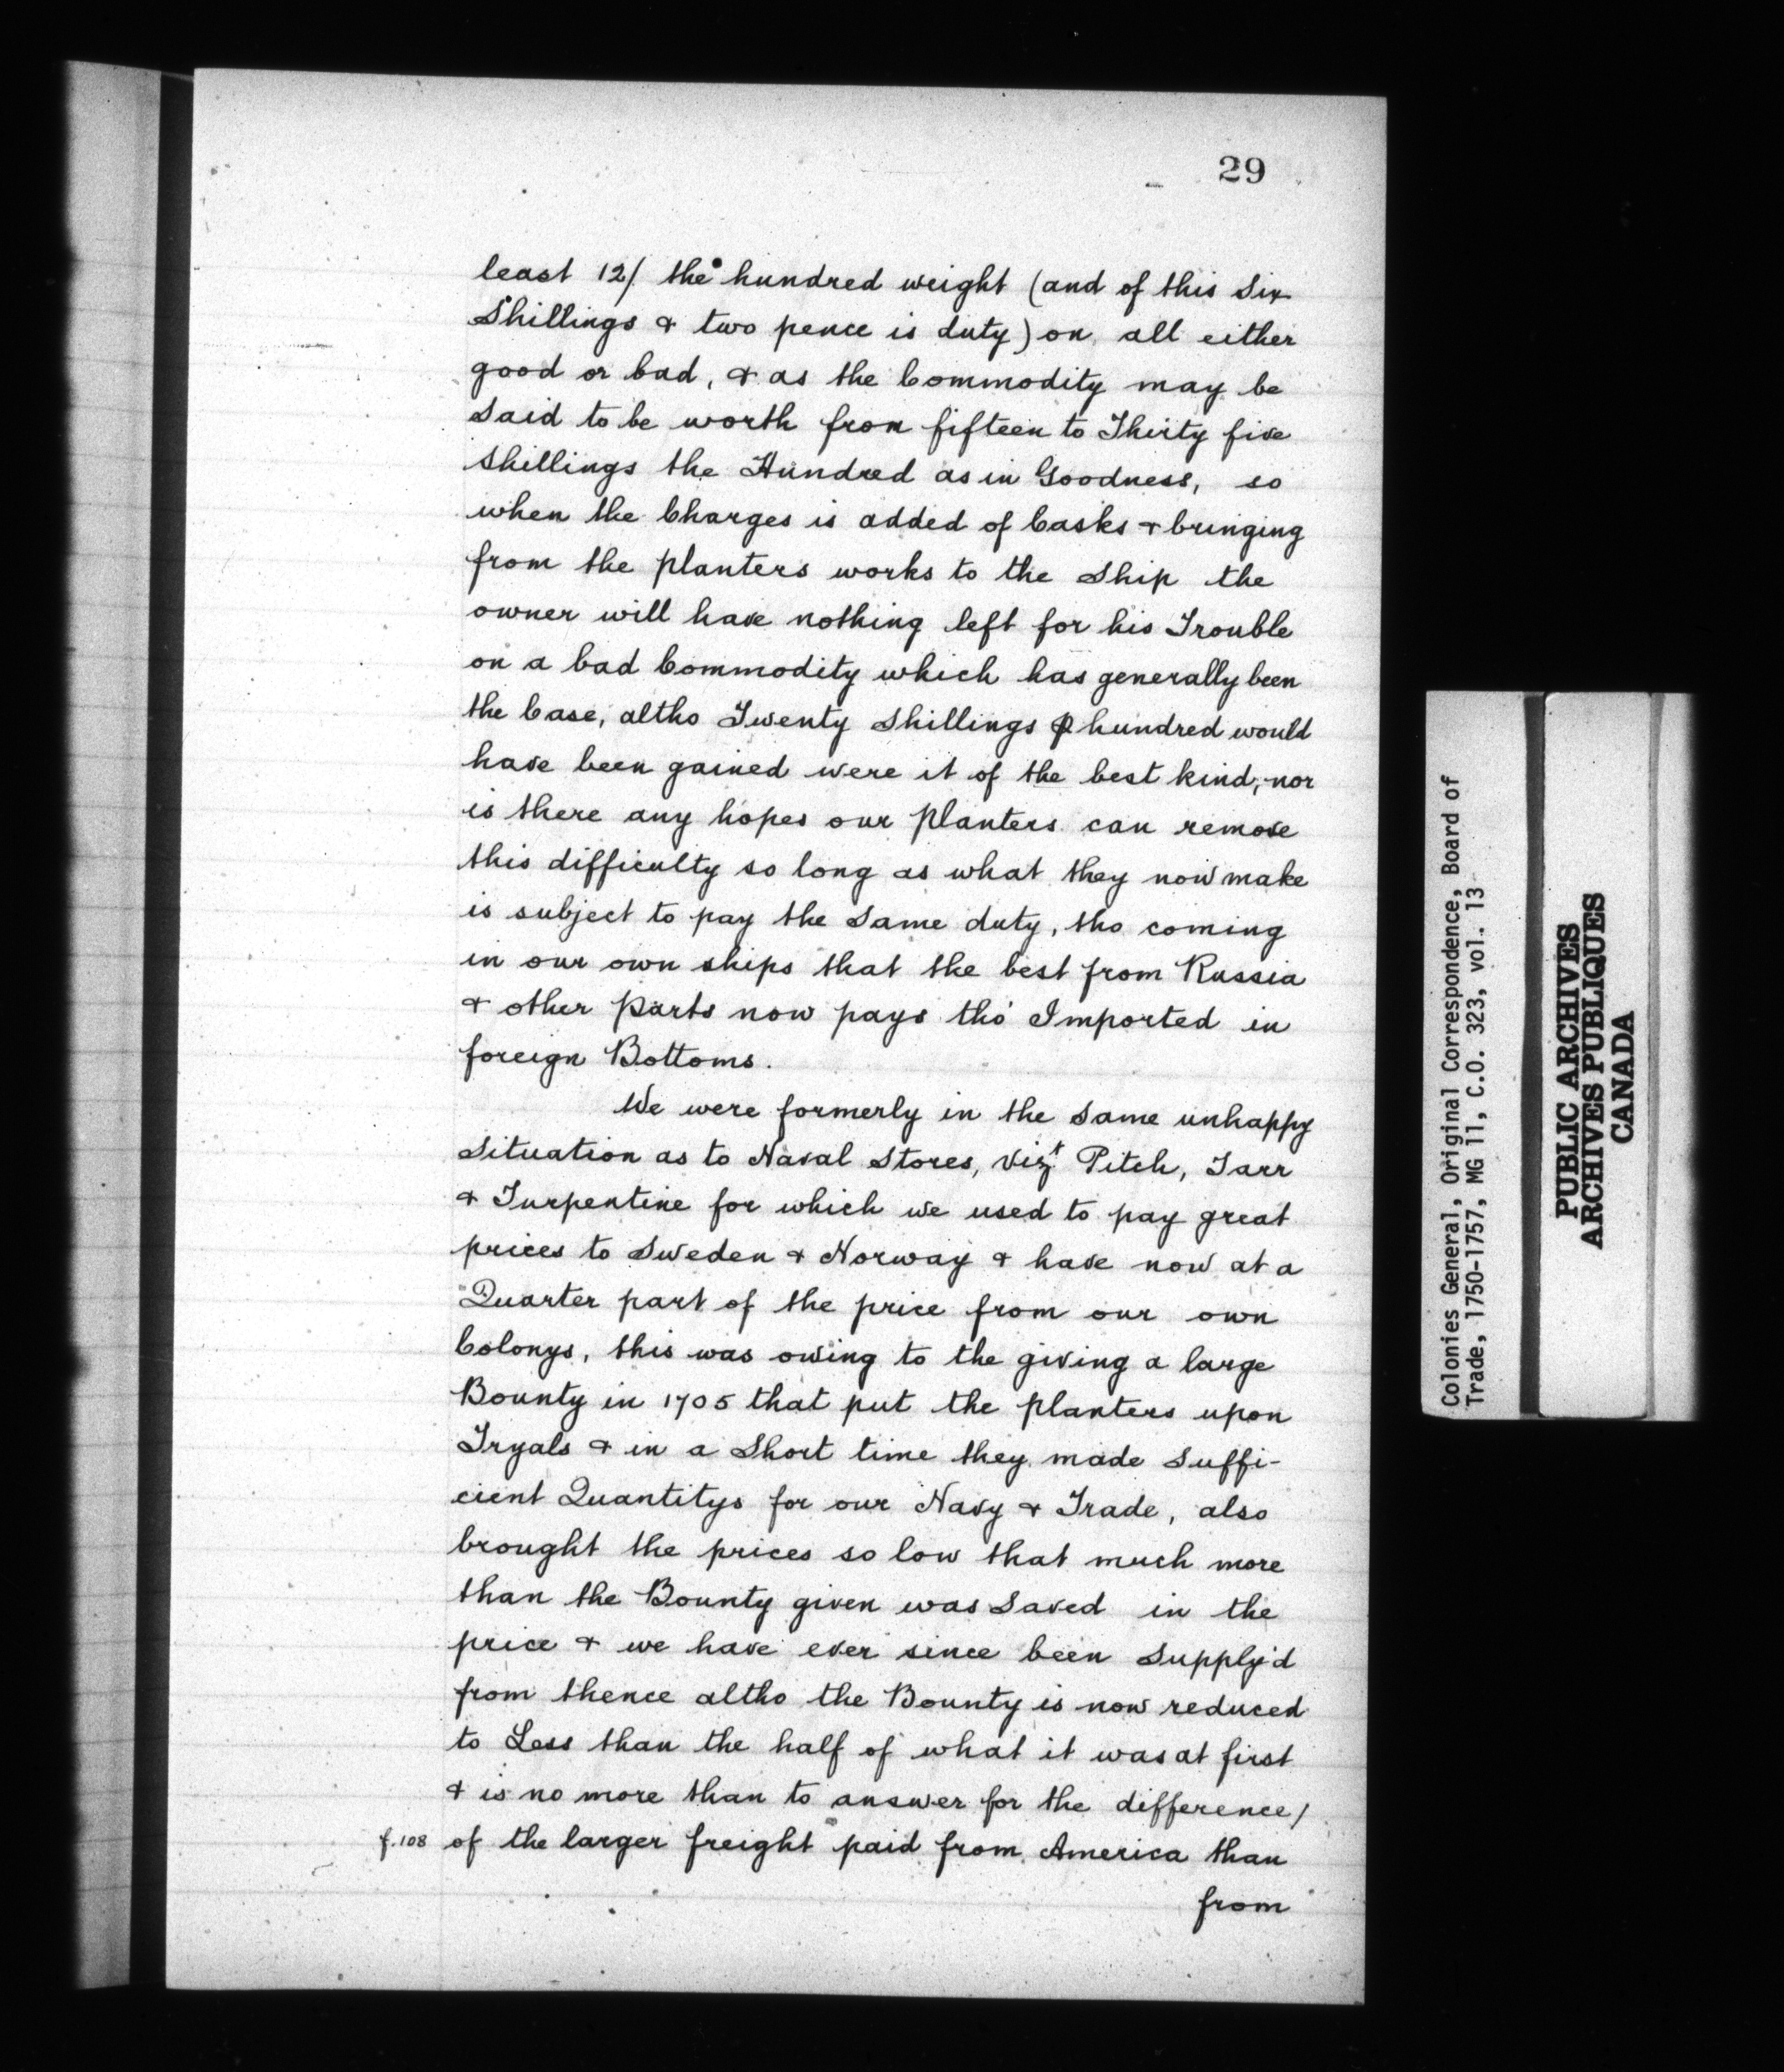 29
least 12/ the hundred weight (and of this Six
Shillings & two pence is duty) on all either
good or bad, & as the Commodity may be
Said to be worth from fifteen to Thirty five
Shillings the Hundred as in Goodness, so
when the Charges is added of Casks & bringing
from the planters works to the Ship the
owner will have nothing left for his Trouble
on a bad Commodity which has generally been
the Case, altho Twenty Shillings ⅌ hundred would
have been gained were it of the best kind; nor
is there any hopes our planters can remove
this difficulty so long as what they now make
is subject to pay the Same duty, tho coming
in our own ships that the best from Russia
& other parts now pays tho' Imported in
foreign Bottoms.
We were formerly in the Same unhappy
Situation as to Naval Stores, Vizt Pitch, Tarr
& Turpentine for which we used to pay great
prices to Sweden & Norway & have now at a
Quarter part of the price from our own
Colonys, this was owing to the giving a large
Bounty in 1705 that put the planters upon
Tryals & in a Short time they made Suffi-
cient Quantitys for our Navy & Trade, also
brought the prices so low that much more
than the Bounty given was Saved in the
price & we have ever since been Supply'd
from thence altho the Bounty is now reduced
to Less than the half of what it was at first
& is no more than to answer for the difference/
f.108 of the larger freight paid from America than
from
Colonies General, Original Correspondence, Board of
Trade, 1750-1757, MG 11, C.O. 323, vol. 13
PUBLIC ARCHIVES
ARCHIVES PUBLIQUES
CANADA